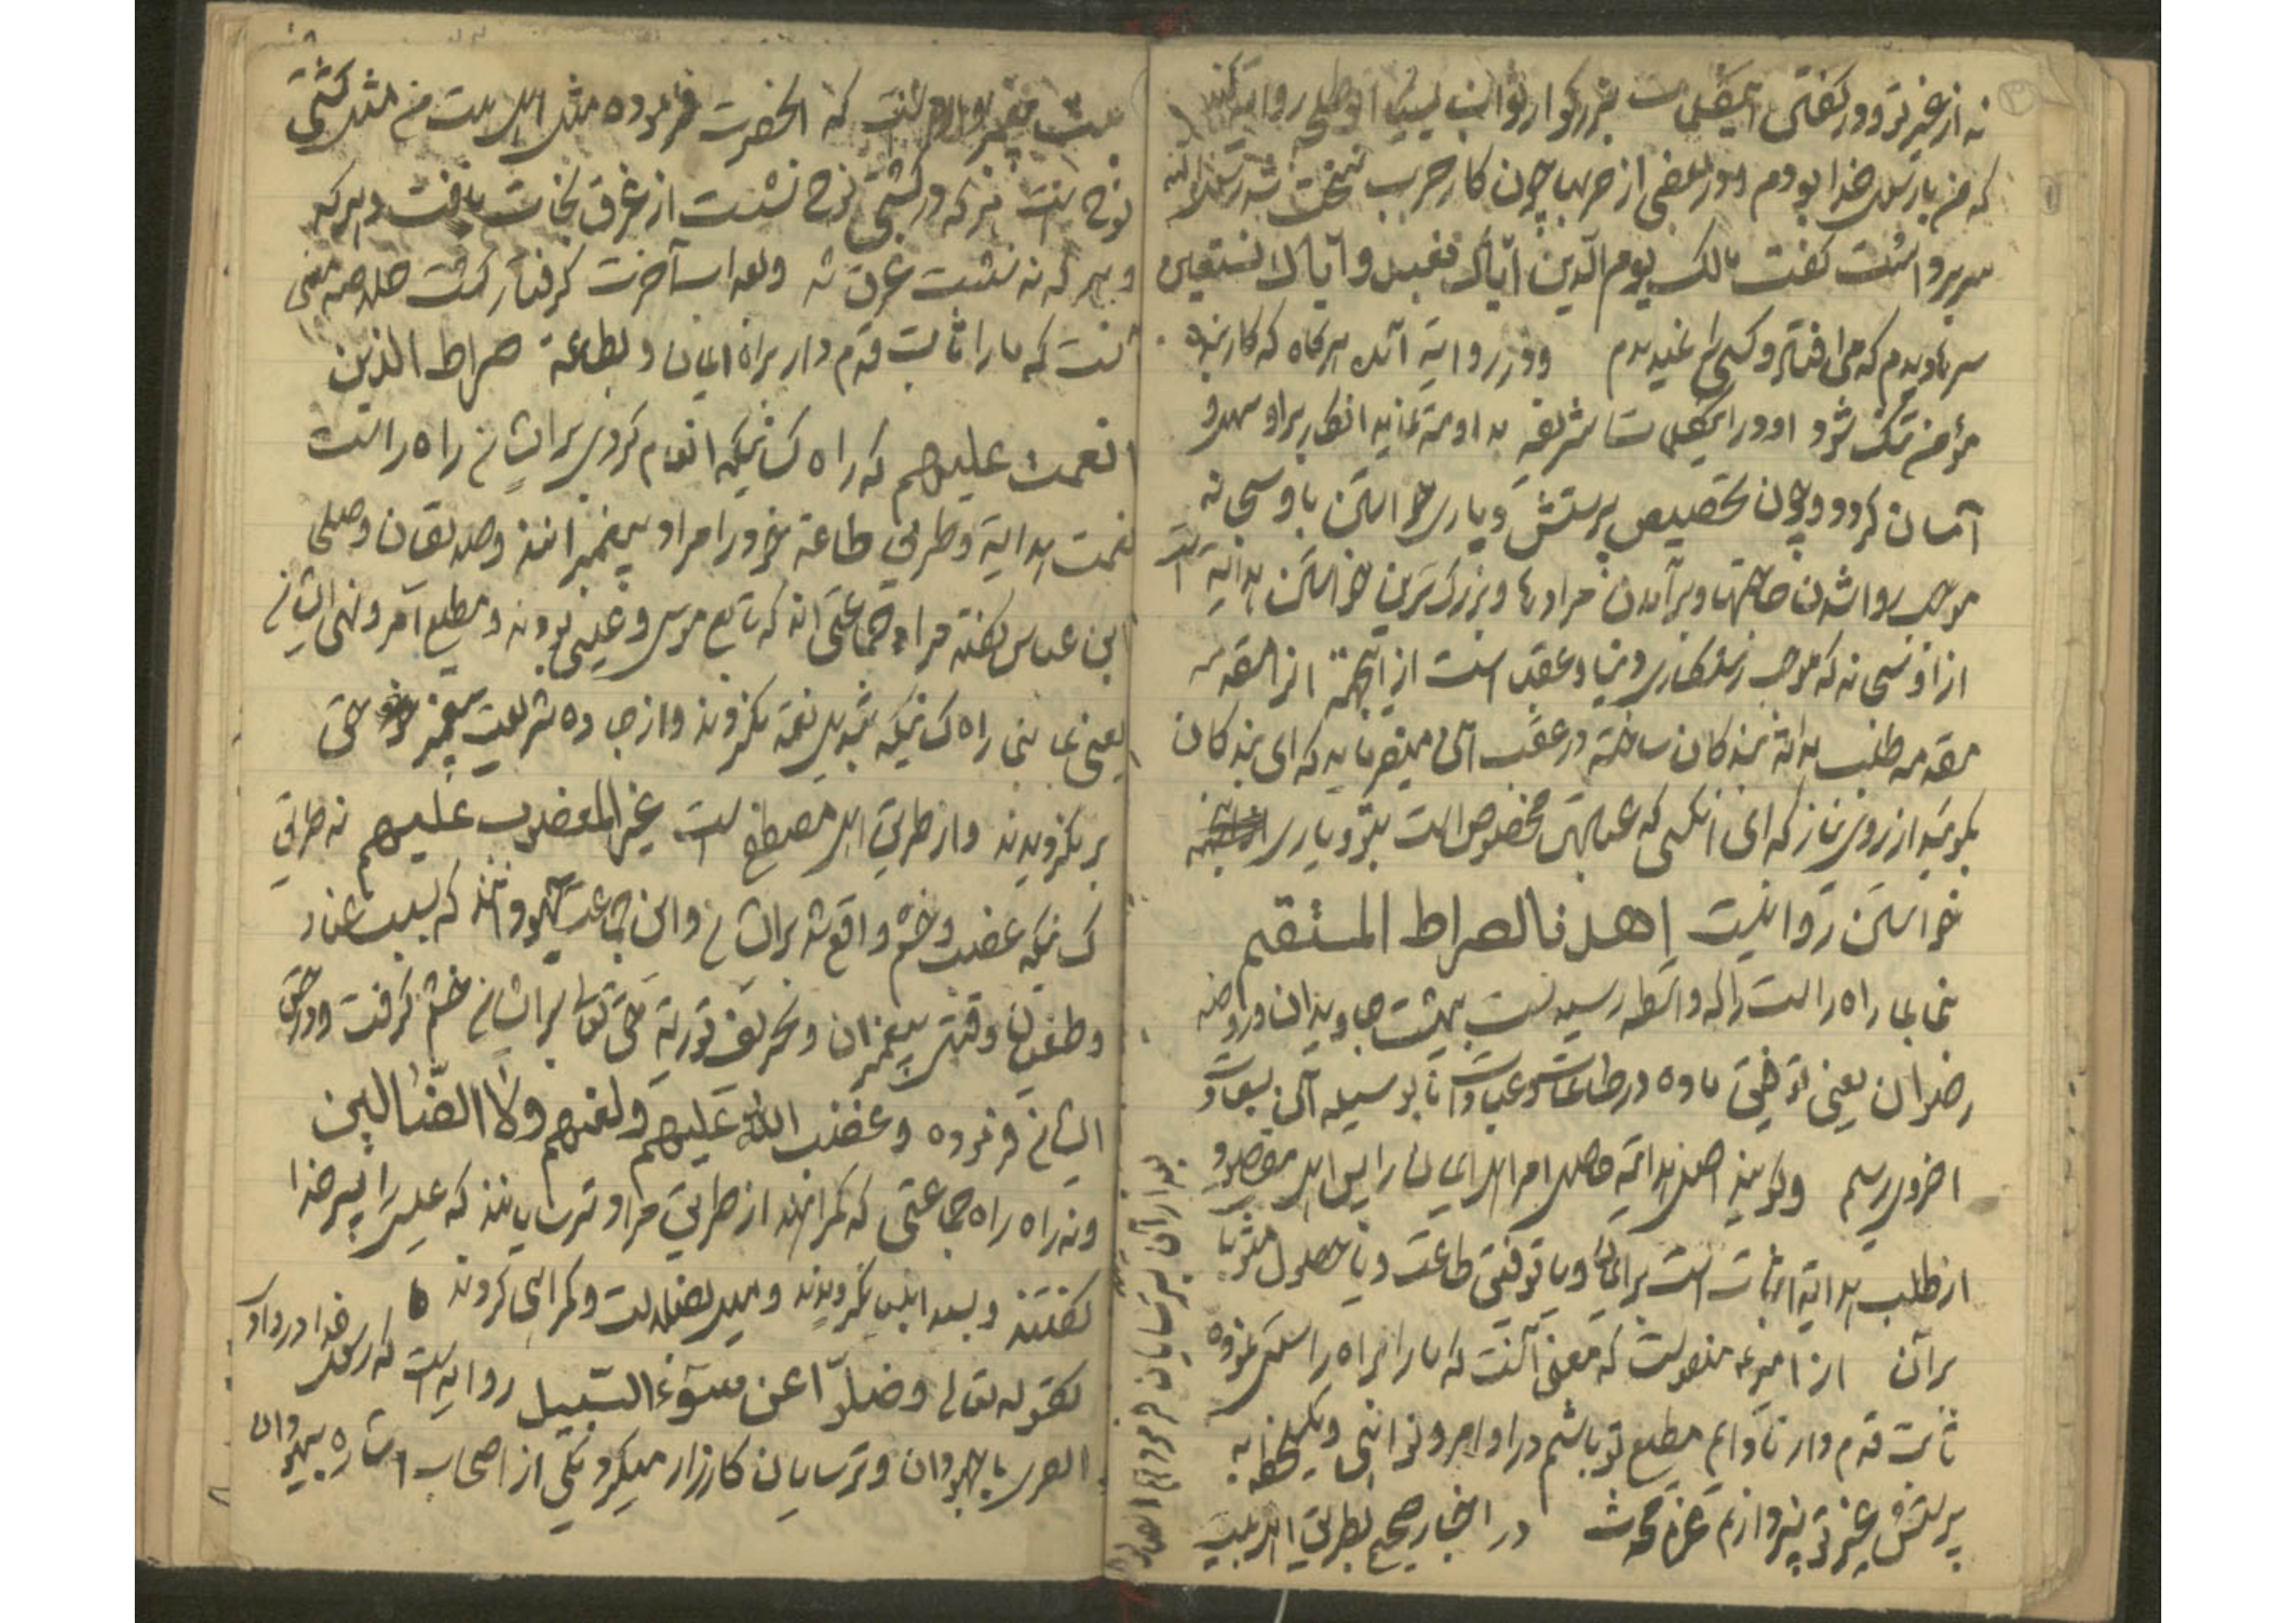 نه از غیر تو و در گفتن این کلمات بزرگوار ثواب بسیار
که من با رسول خدا بودم و در بعضی از حربها چون کار حرب سخت شد رسول الله
سر برداشت گفت مالک یوم الدین ایاک نعبد وایاک نستعین
سرها دیدم که می افتاد و کسی را نمیدیدم و در روایة آمده هرگاه که کار بنده
مؤمن تنک شود او در این کلمات شریفه مداومة نماید انکار براو سهل و
آسان گردد و چون تخصیص پرستش و یاری خواستن باو سبحانه
موجب روا شدن حاجتها و برآمدن مرادها و بزرگترین خواستن هدایة است
از او سبحانه که موجب رستکاری دنیا و عقبی است از اینجهة این را مقدمه
مقدمه طلب هدایة بندکان ساخته در عقب آن میفرماید که ای بندکان
بگوئید از روی نیاز که ای آنکسی که عبادت مخصوص است بتو و یاری
خواستن روا نیست اهدنا الصراط المستقیم
بنما بما راه راست را که واسطه رسیدنست ببهشت جاویدان و روضه
رضوان یعنی توفیق ما ده در طاعات و عبادات تا بوسیله آن بسعادت
اخروی رسیم و گویند اصل هدایة حاصل امر اهل ایمان را پس اهل مقصود
از طلب هدایة اثبات است بر ایمان و یا توفیق طاعت و یا حصول مثوبات
برآن از ائمه منقولست که معنی آنست که ما را براه راست که نموده
ثابت قدم دار تا دایم مطیع تو باشیم در اوامر و نواهی و یک لحظه به
پرستش غیر تو نپردازیم در اخبار صحیح بطریق اهل بیت
بیت پیغمبر وارد است که آنحضرت فرموده مثل اهل بیت من مثل کشتی
نوح است هرکه در کشتی نوح نشست از غرق نجات یافت و هرکه
و هرکه نه نشست غرق شد و بعذاب آخرت گرفتار گشت خلاصه معنی
آنست که ما را ثابت قدم دار براه ایمان و بطاعة صراط الذین
انعمت علیهم که راه کسانیکه انعام کردی برایشان راه راست
نعمت هدایة و طریق طاعة خود را مراد پیغمبرانند و صدیقان و صلحا
ابن عباس گفته مراد جماعتی اند که تابع موسی و عیسی بودند و مطیع امر و نهی ایشان
یعنی بما بنمای راه کسانیکه تبدیل نعمة نکردند و از جاده شریعت پیغمبر حق
بر نگردیدند و از طریق اهل مصطفی است غیر المغضوب علیهم نه طریق
کسانیکه غضب و خشم واقع شد برایشان و این جماعت یهودانند که بسبب عناد
و طغیان و قتل پیغمبران و تحریف توریة حق تعالی برایشان خشم گرفت و در حق
ایشان فرموده و غضب الله علیهم و لعنهم ولا الضّالین
و نه راه راه جماعتی که گمراهند از طریق مراد ترسایانند که عیسی را پسر خدا
گفتند و بعد ازین نگردیدند و میل بضلالت و گمراهی کردند
کقوله تعالی وضلّوا عن سوآء السّبیل روایت است که رسول خدا در وادی
القری با یهودان و ترسایان کارزار میکرد یکی از اصحاب اشاره بیهودان